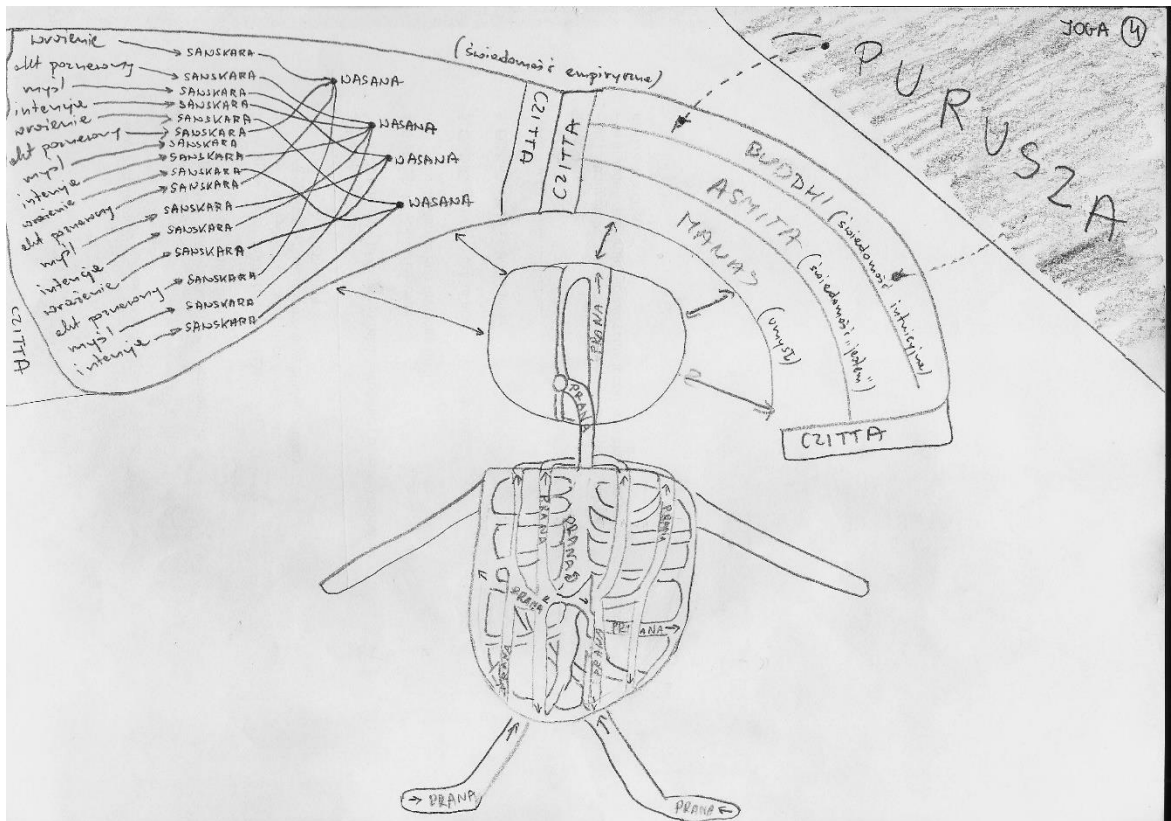 JOGA 4
PURUSZA
(świadomość empiryczna)
wrażenie SANSKARA
akt poznawczy SANSKARA
myśl SANSKARA
intencje SANSKARA
wrażenie SANSKARA
akt poznawczy SANSKARA
myśl SANSKARA
intencje SANSKARA
wrażenie SANSKARA
akt poznawczy SANSKARA
myśl SANSKARA
intencje SANSKARA
wrażenie SANSKARA
akt poznawczy SANSKARA
myśl SANSKARA
intencje SANSKARA
WASANA
WASANA
WASANA
WASANA
CZITTA
CZITTA
CZITTA
BUDDHI (świadomość intuicyjna)
ASMITA (świadomość „jestem”)
MANAS (umysł)
CZITTA
PRANA
PRANA
PRANA
PRANA
PRANA
PRANA
PRANA
PRANA
PRANA
PRANA
PRANA